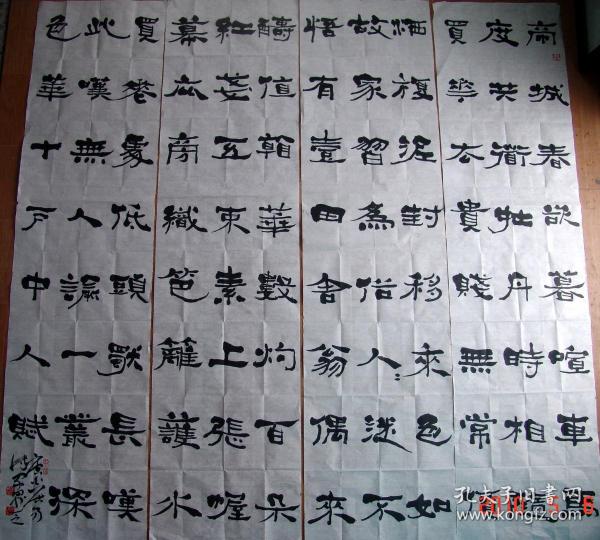 帝城春欲暮喧車馬
度共道牡丹時相
買華去貴賤無常
洒復泥封移來色如
故家習為俗人〻迷不
悟有壹田舍翁偶來
酬值看華數灼百朵
紅戔五束素上張幄
幕庇旁織笆籬護水
買花處低頭獨長嘆
此嘆無人諭一叢深
色華十戶中人賦
孔夫子旧書网
www.kongfz.com